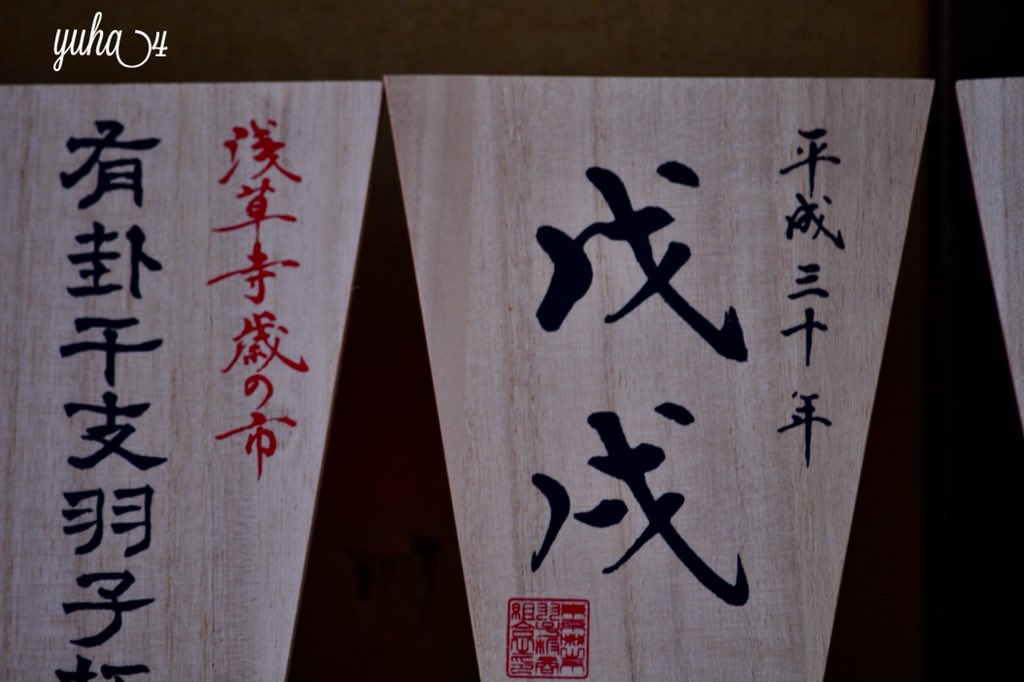 yuha 4
平成三十年
戊戌
浅草寺歳の市
有卦干支羽子板